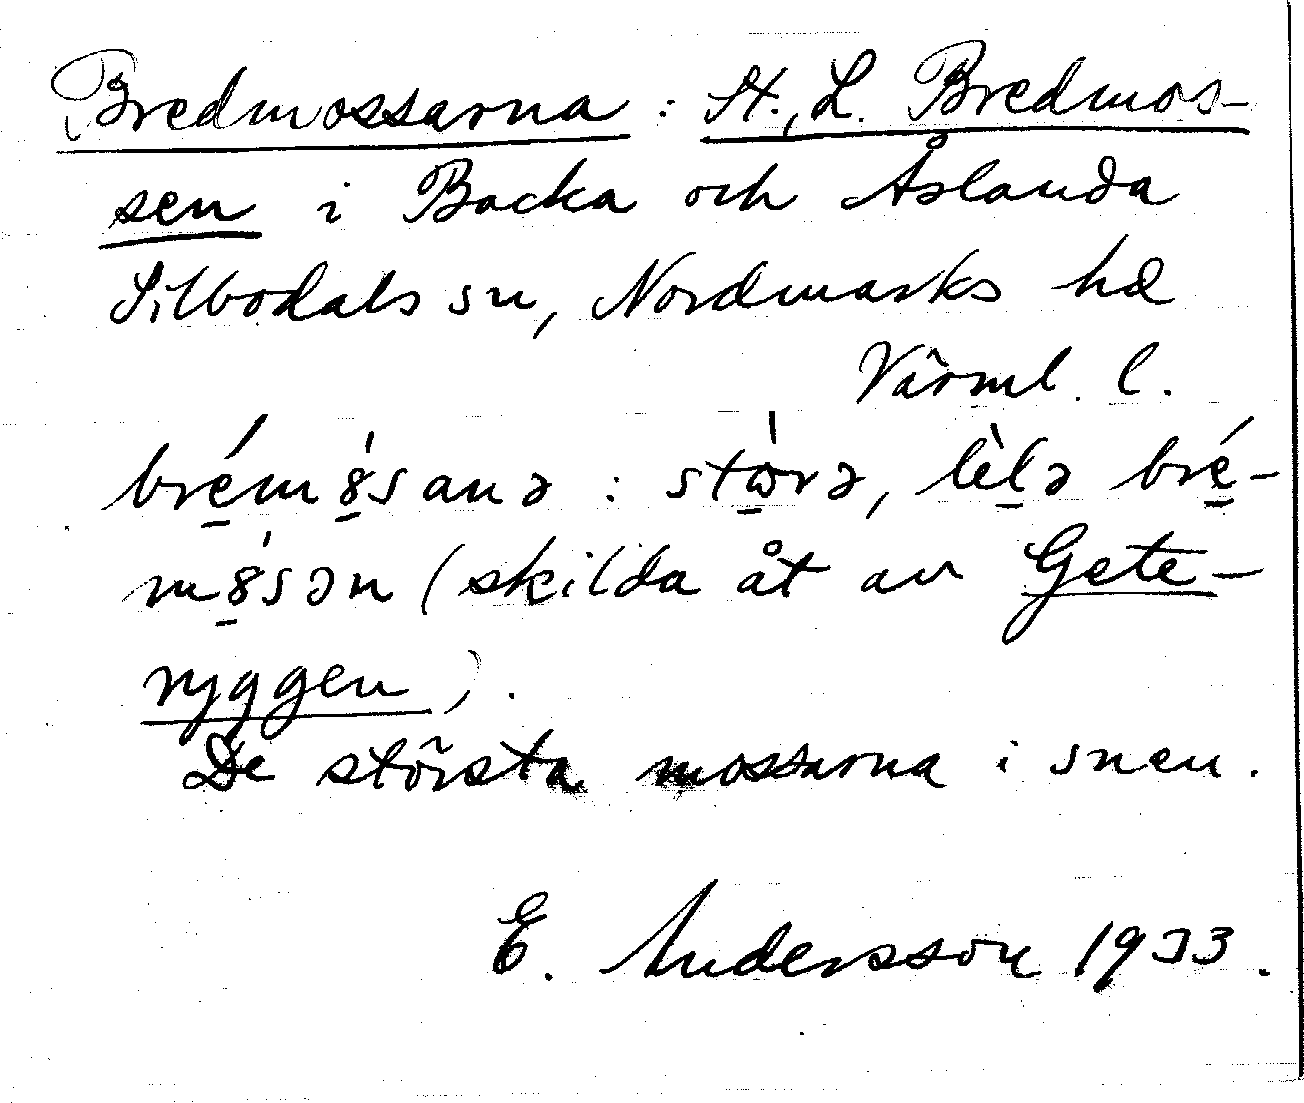 Bredmossarna : St., L. Bredmos-
sen i Backa och Åslanda
Silbodals sn, Nordmarks hd
Värml. l.
brém8̀sanə : stòrə, lèlə bré-
m8̀sən (skilda åt av Gete-
ryggen).
De största mossarna i snen.
E. Andersson 1933.